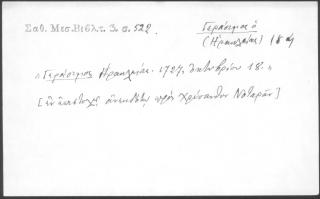 Σαθ. Μεσ.Βιβλ. τ. 3. σ. 522.
Γεράσιμος ὁ
(Ἡρακλείας) 18 η
"Γεράσιμος Ἡρακλείας. 1727, Ὀκτωβρίου 18."
[ἐν ἐπιστολῇ ἀνεκδότῳ πρὸς Χρύσανθον Νοταρᾶν]